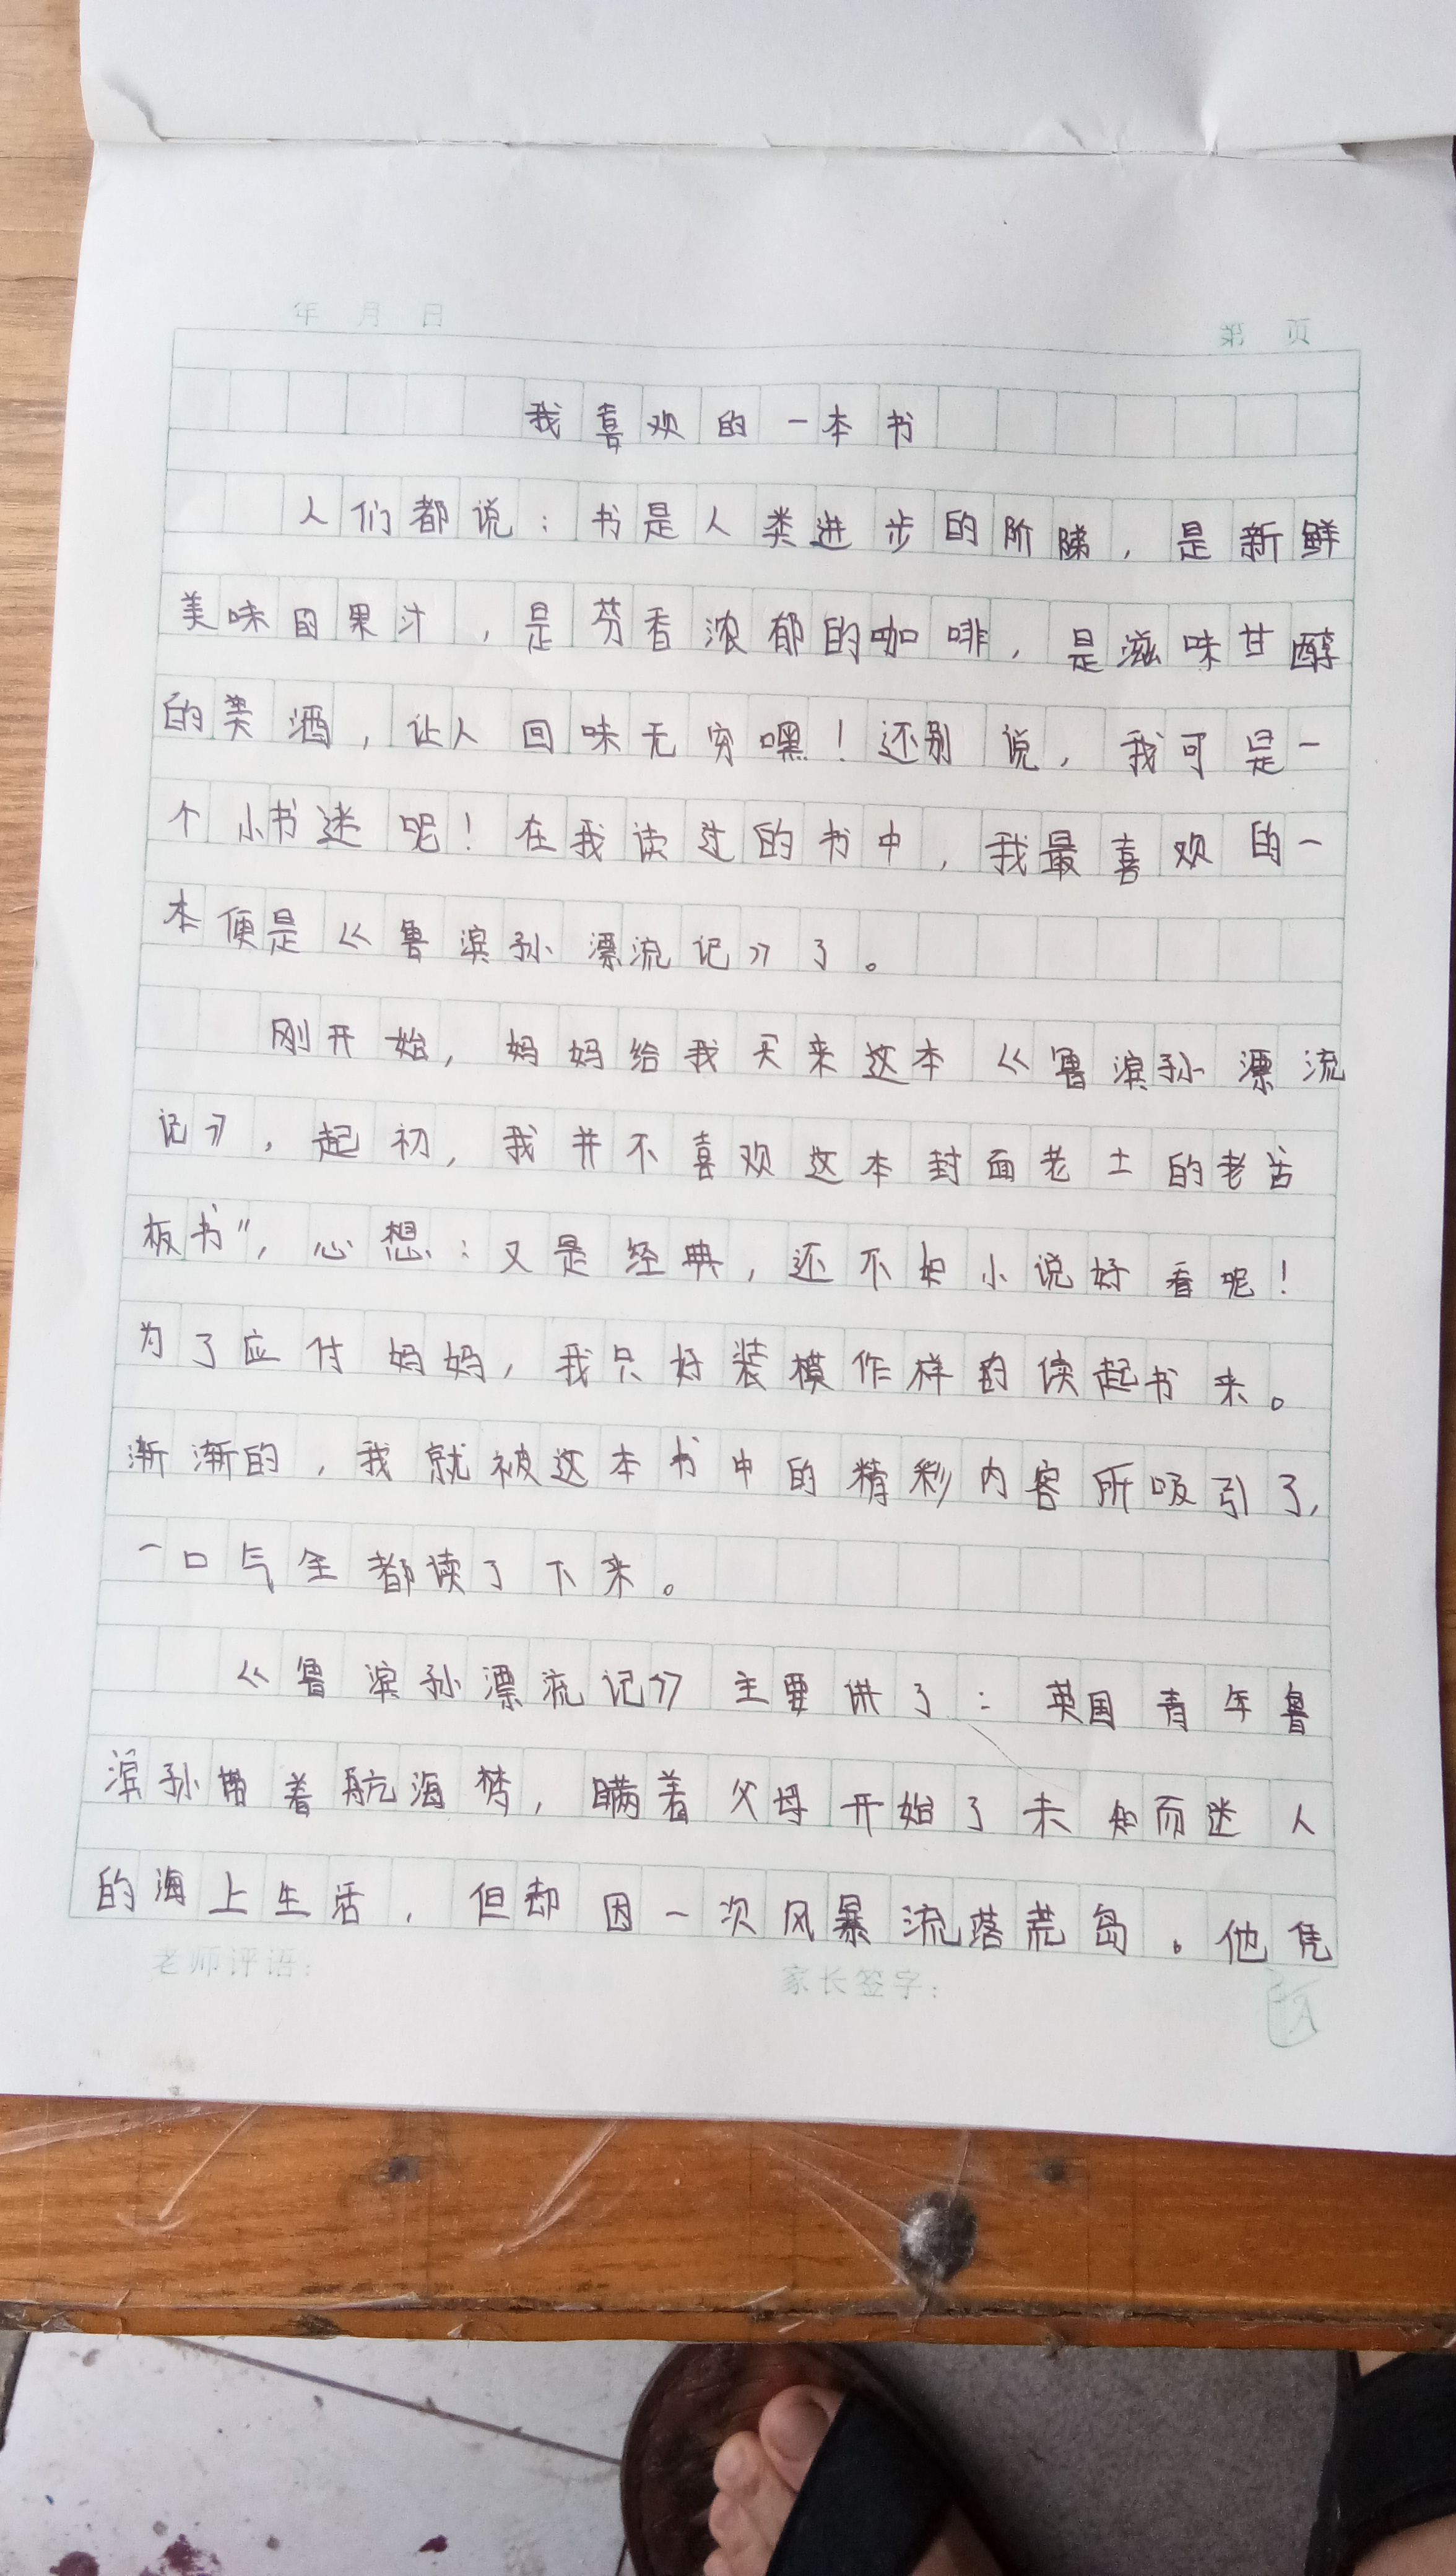 年 月 日
第 页
我喜欢的一本书
人们都说：书是人类进步的阶梯，是新鲜
美味的果汁，是芬香浓郁的咖啡，是滋味甘醇
的美酒，让人回味无穷嘿！还别说，我可是一
个小书迷呢！在我读过的书中，我最喜欢的一
本便是《鲁滨孙漂流记》了。
刚开始，妈妈给我买来这本《鲁滨孙漂流
记》，起初，我并不喜欢这本封面老土的老古
板书”，心想：又是经典，还不如小说好看呢！
为了应付妈妈，我只好装模作样的读起书来。
渐渐的，我就被这本书中的精彩内容所吸引了，
一口气全都读了下来。
《鲁滨孙漂流记》主要讲了：英国青年鲁
滨孙带着航海梦，瞒着父母开始了未知而迷人
的海上生活，但却因一次风暴流落荒岛。他凭
老师评语：
家长签字：